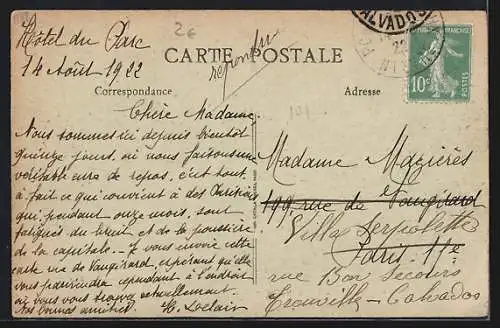 Hôtel du Parc
14 Août 1922
2€
répondu
CARTE POSTALE
Correspondance
Adresse
CALVADOS
10c
101
Chère Madame,
Nous sommes ici depuis bientôt
quinze jours, où nous faisons une
véritable cure de repos, c'est tout
à fait ce qui convient à des Parisiens
qui, pendant onze mois, sont
fatigués du bruit et de la poussière
de la capitale. Je vous envoie cette
carte rue de Vaugirard, espérant qu'elle
vous parviendra cependant à l'endroit
où vous vous trouvez actuellement.
Nos bonnes amitiés.
Madame Mazières
199, rue de Vaugirard
Villa Serpolette
Paris 11e
rue Bon Secours
Trouville - Calvados